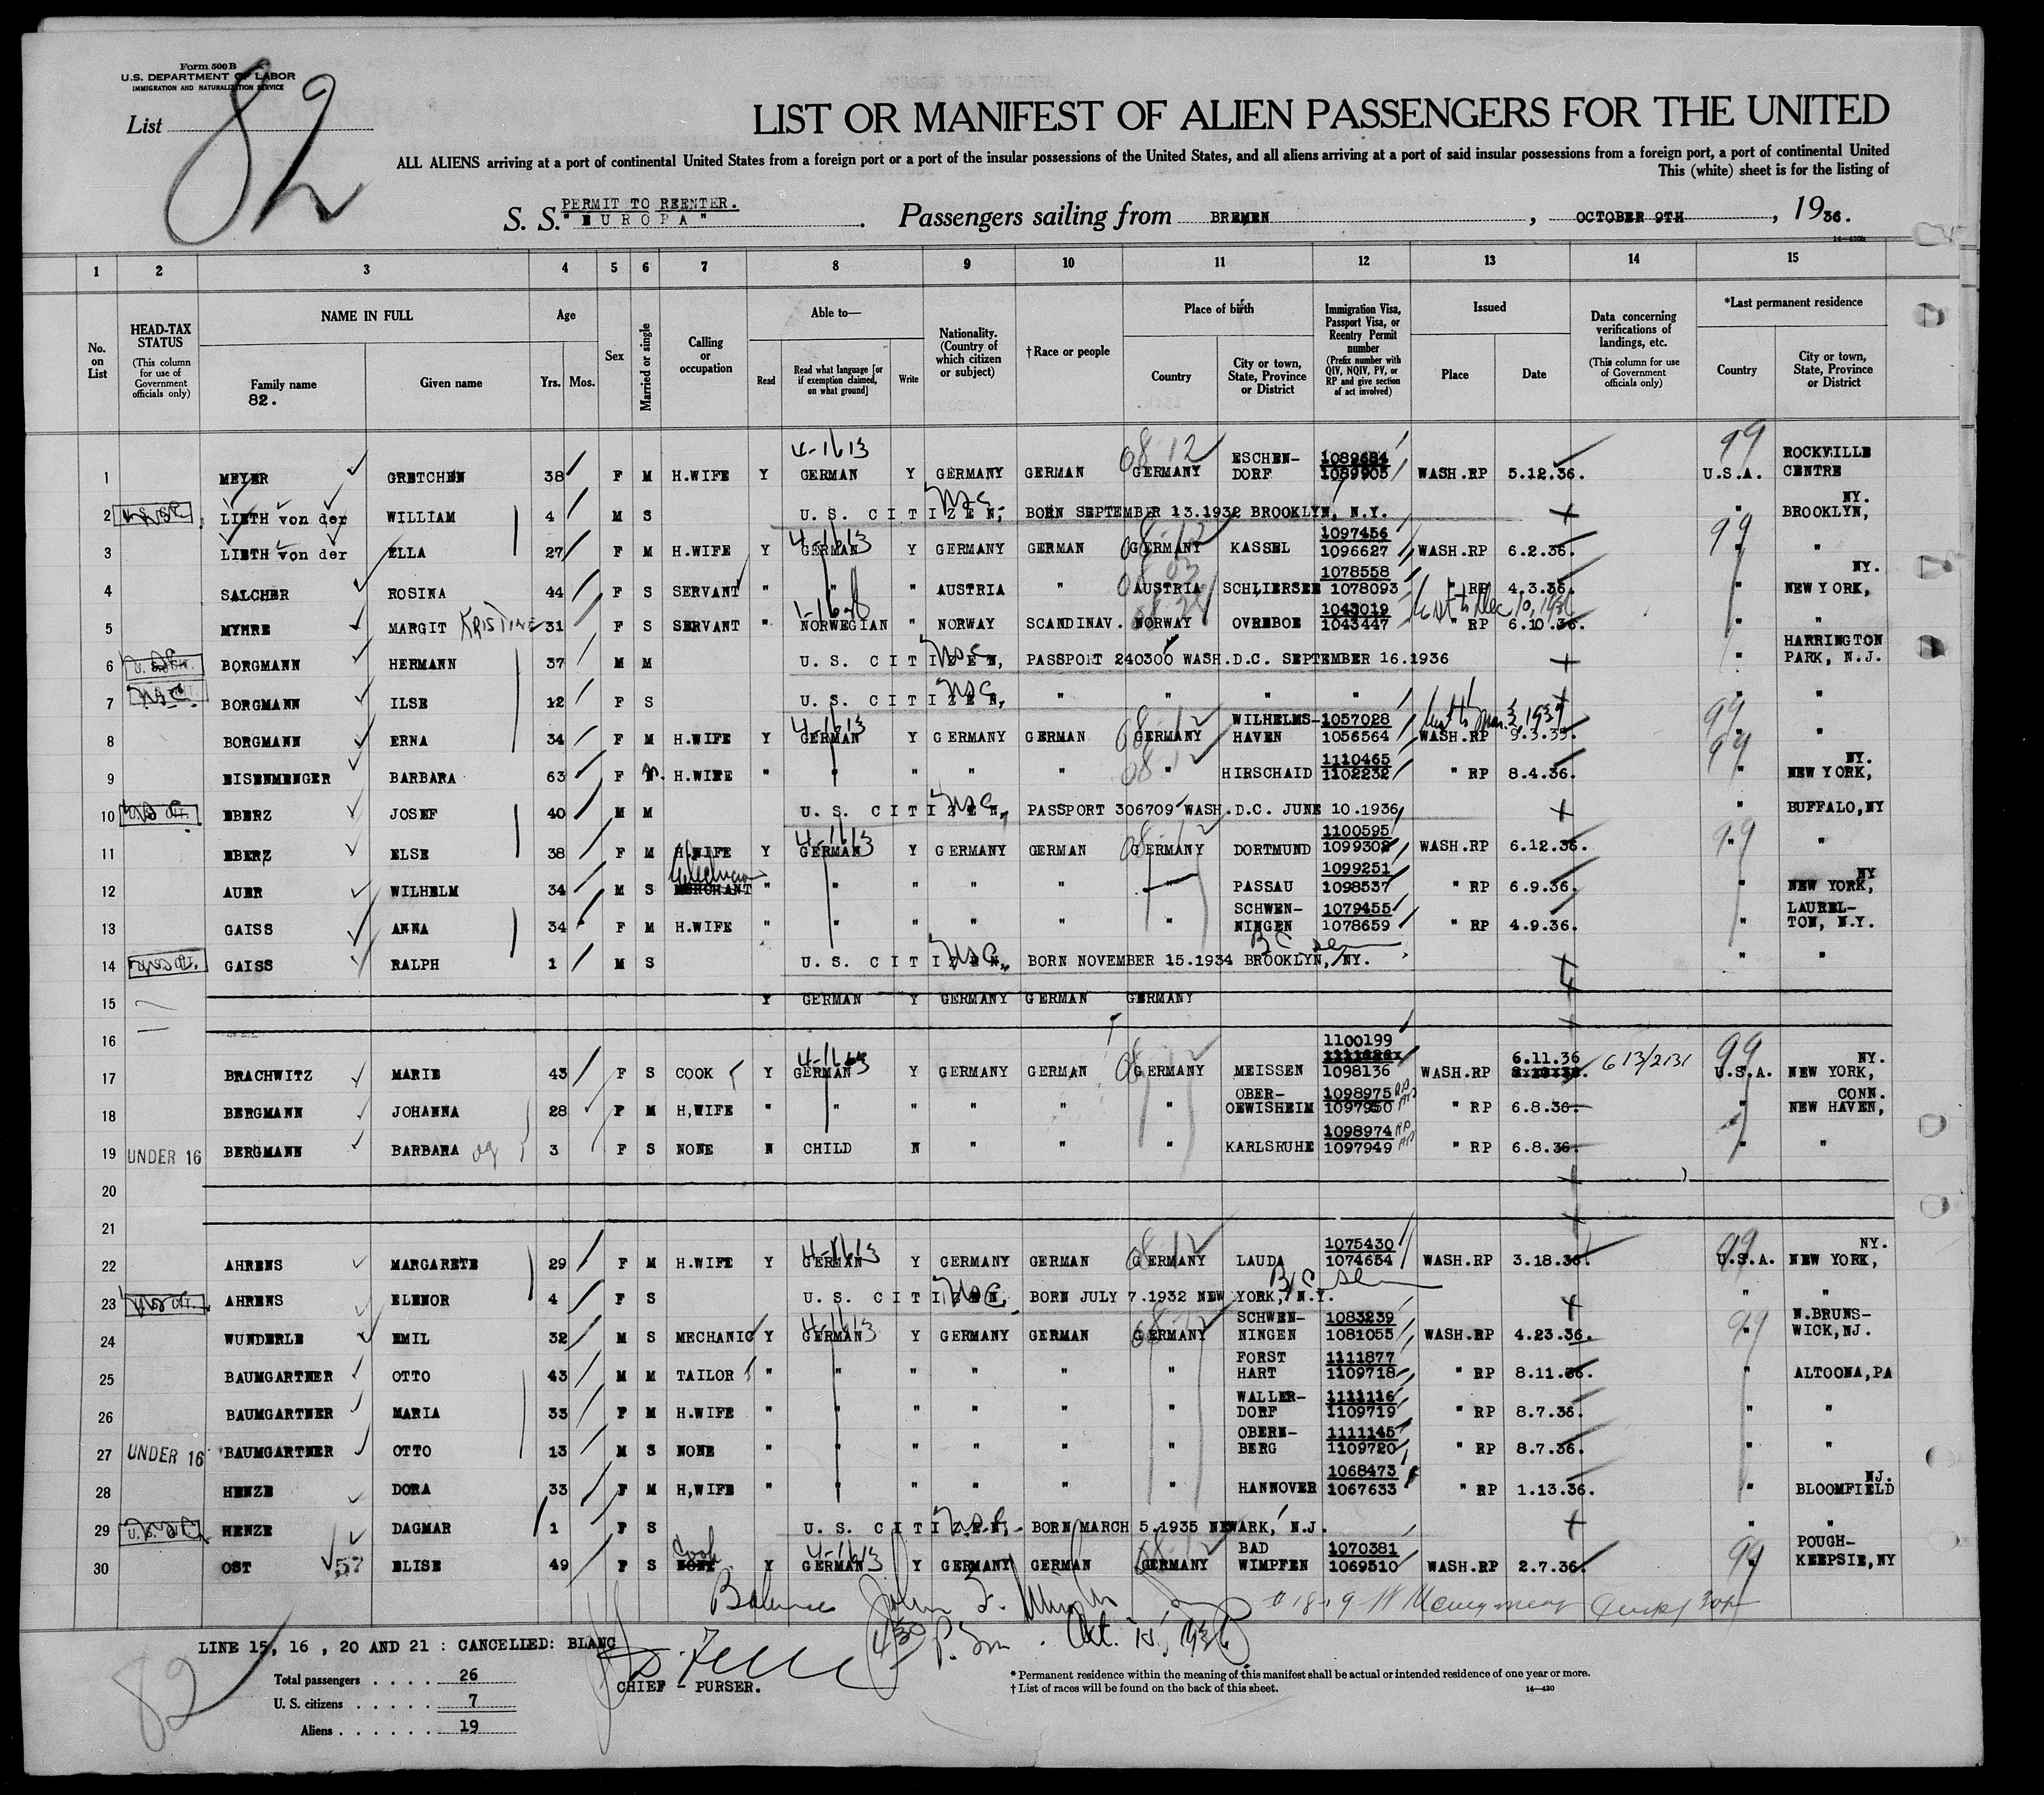 Form 500 B
U.S. DEPARTMENT OF LABOR
IMMIGRATION AND NATURALIZATION SERVICE
List 82
LIST OR MANIFEST OF ALIEN PASSENGERS FOR THE UNITED
ALL ALIENS arriving at a port of continental United States from a foreign port or a port of the insular possessions of the United States, and all aliens arriving at a port of said insular possessions from a foreign port, a port of continental United
This (white) sheet is for the listing of
PERMIT TO REENTER.
S. S. "EUROPA" . Passengers sailing from BREMEN , OCTOBER 9TH , 1936.
14—430b
1 2 3 4 5 6 7 8 9 10 11 12 13 14 15
No. on List
HEAD-TAX STATUS (This column for use of Government officials only)
NAME IN FULL
Family name 82.
Given name
Age Yrs. Mos.
Sex
Married or single
Calling or occupation
Able to—
Read
Read what language [or if exemption claimed, on what ground]
Write
Nationality. (Country of which citizen or subject)
† Race or people
Place of birth
Country
City or town, State, Province or District
Immigration Visa, Passport Visa, or Reentry Permit number (Prefix number with QIV, NQIV, PV, or RP and give section of act involved)
Issued
Place
Date
Data concerning verifications of landings, etc. (This column for use of Government officials only)
*Last permanent residence
Country
City or town, State, Province or District
1 MEYER GRETCHEN 38 F M H.WIFE Y GERMAN 4-1613 Y GERMANY GERMAN GERMANY 08-12 ESCHEN-DORF 1089684 1089905 WASH.RP 5.12.36. 99 U.S.A. ROCKVILLE CENTRE NY.
2 LIETH von der WILLIAM 4 M S U.S. CITIZEN, USC BORN SEPTEMBER 13.1932 BROOKLYN, N.Y. " BROOKLYN,
3 LIETH von der ELLA 27 F M H.WIFE Y GERMAN 4-1613 Y GERMANY GERMAN GERMANY 08-12 KASSEL 1097456 1096627 WASH.RP 6.2.36. 99 " "
4 SALCHER ROSINA 44 F S SERVANT " " " AUSTRIA " AUSTRIA 08 SCHLIERSEE 1078558 1078093 " RP 4.3.36. " NEW YORK, NY.
5 MYHRE MARGIT KRISTINE 31 F S SERVANT " NORWEGIAN " NORWAY SCANDINAV. NORWAY OVREBOE 1043019 1043447 " RP 6.10.36. " "
6 BORGMANN HERMANN 37 M M U.S. CITIZEN, USC PASSPORT 240300 WASH.D.C. SEPTEMBER 16.1936 " HARRINGTON PARK, N.J.
7 BORGMANN ILSE 12 F S U.S. CITIZEN, USC " " " " " "
8 BORGMANN ERNA 34 F M H.WIFE Y GERMAN 4-1613 Y GERMANY GERMAN GERMANY 08-12 WILHELMS-HAVEN 1057028 1056564 WASH.RP 9.3.35. 99 " "
9 EISENMENGER BARBARA 63 F M H.WIFE " " " " " " 08-12 HIRSCHAID 1110465 1102232 " RP 8.4.36. 99 " NEW YORK, NY.
10 EBERZ JOSEF 40 M M U.S. CITIZEN, USC PASSPORT 306709 WASH.D.C. JUNE 10.1936 " BUFFALO,NY
11 EBERZ ELSE 38 F M H.WIFE Y GERMAN 4-1613 Y GERMANY GERMAN GERMANY 08-12 DORTMUND 1100595 1099302 WASH.RP 6.12.36. 99 " "
12 AUER WILHELM 34 M S MERCHANT " " " " " " PASSAU 1099251 1098537 " RP 6.9.36. " NEW YORK, NY
13 GAISS ANNA 34 F M H.WIFE " " " " " " SCHWEN-NINGEN 1079455 1078659 " RP 4.9.36. " LAUREL-TON, N.Y.
14 GAISS RALPH 1 M S U.S. CITIZEN, USC BORN NOVEMBER 15.1934 BROOKLYN, NY. BC seen " "
15 Y GERMAN Y GERMANY GERMAN GERMANY
16
17 BRACHWITZ MARIE 43 F S COOK Y GERMAN Y GERMANY GERMAN GERMANY 08-12 MEISSEN 1100199 1098136 WASH.RP 6.11.36 613/2131 99 U.S.A. NEW YORK, NY.
18 BERGMANN JOHANNA 28 F M H,WIFE " " " " " " OBER-OEWISHEIM 1098975 1097950 " RP 6.8.36. " NEW HAVEN, CONN.
19 UNDER 16 BERGMANN BARBARA 3 F S NONE N CHILD N " " " KARLSRUHE 1098974 1097949 " RP 6.8.36. " "
20
21
22 AHRENS MARGARETE 29 F M H.WIFE Y GERMAN 4-1613 Y GERMANY GERMAN GERMANY 08-12 LAUDA 1075430 1074654 WASH.RP 3.18.36. 99 U.S.A. NEW YORK, NY.
23 AHRENS ELENOR 4 F S U.S. CITIZEN, USC BORN JULY 7.1932 NEW YORK, N.Y. B/C seen " "
24 WUNDERLE EMIL 32 M S MECHANIC Y GERMAN 4-1613 Y GERMANY GERMAN GERMANY 08-12 SCHWEN-NINGEN 1083239 1081055 WASH.RP 4.23.36. 99 " N.BRUNS-WICK,NJ.
25 BAUMGARTNER OTTO 43 M M TAILOR " " " " " " FORST HART 1111877 1109718 " RP 8.11.36. " ALTOONA,PA
26 BAUMGARTNER MARIA 33 F M H.WIFE " " " " " " WALLER-DORF 1111116 1109719 " RP 8.7.36. " "
27 UNDER 16 BAUMGARTNER OTTO 13 M S NONE " " " " " " OBERN-BERG 1111145 1109720 " RP 8.7.36. " "
28 HENZE DORA 33 F M H,WIFE " " " " " " HANNOVER 1068473 1067633 " RP 1.13.36. " BLOOMFIELD NJ.
29 HENZE DAGMAR 1 F S U.S. CITIZEN, USC BORN MARCH 5.1935 NEWARK, N.J. " "
30 OST 57 ELISE 49 F S NONE Cook Y GERMAN 4-1613 Y GERMANY GERMAN GERMANY 08-12 BAD WIMPFEN 1070381 1069310 WASH.RP 2.7.36. 99 " POUGH-KEEPSIE,NY
John F.
430 P.m. Oct. 15, 1936
LINE 15, 16 , 20 AND 21 : CANCELLED: BLANC
82
Total passengers . . . . 26
U. S. citizens . . . . . 7
Aliens . . . . . . 19
CHIEF - PURSER.
* Permanent residence within the meaning of this manifest shall be actual or intended residence of one year or more.
† List of races will be found on the back of this sheet.
14—430